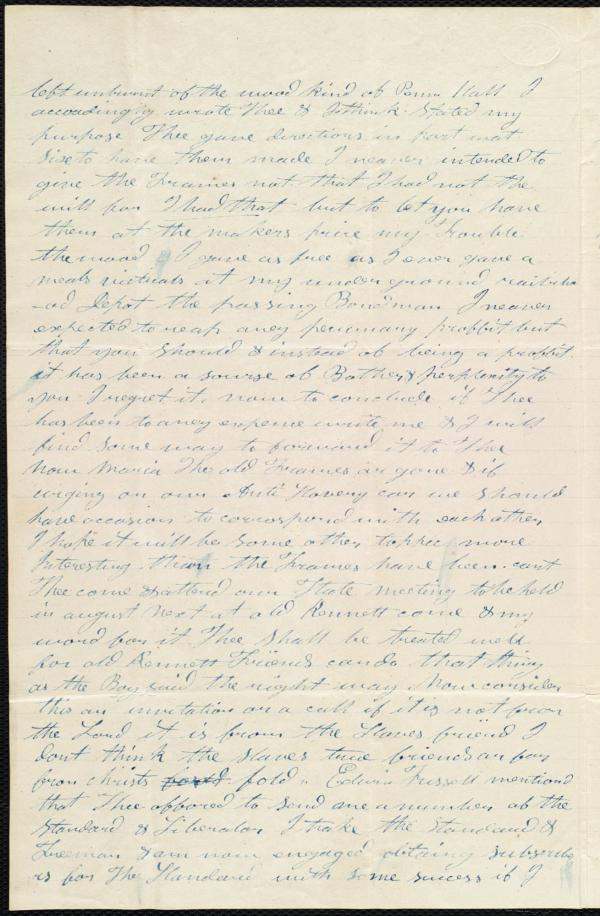 left unburnt of the wood kind of Penn Hall I
accordingly wrote Thee & I think Stated my
purpose Thee gave directions in part what
Size to have them made I neaver intended to
give the Frames not that I had not the
will for I had that but to let you have
them at the makers price my Trouble
the wood I gave as free as I ever gave a
meals victuals at my under ground railro
ad Depot the passing Bondman I neaver
expected to reap aney pecuniary proffit but
that you should & instead of being a proffit
it has been a sourse of Bother & perplexity to
you I regret it. now to conclude if Thee
has been to aney expence write me & I will
find some way to forward it to Thee
Now Maria The old Frames ar gone & if
urging on our Anti Slavery car we should
have occasion to correspond with each other
I hope it will be some other toppic more
Interesting than the Frames have been. cant
Thee come & attend our State meeting to be held
in august Next at old Kennett come & my
word for it Thee Shall be treated well
for old Kennett Friends can do that thing
as the Boy said the right way Now consider
this an invitation or a call if it is not from
the Lord it is from the Slaves friend I
dont think the slaves true friends ar far
from christs fold. Edwin Fussell mentiond
that Thee offored to send me a number of the
Standard & Liberator I take the Standard &
Freeman & am now engaged obtaining subscrib
rs for The Standard with some success if I